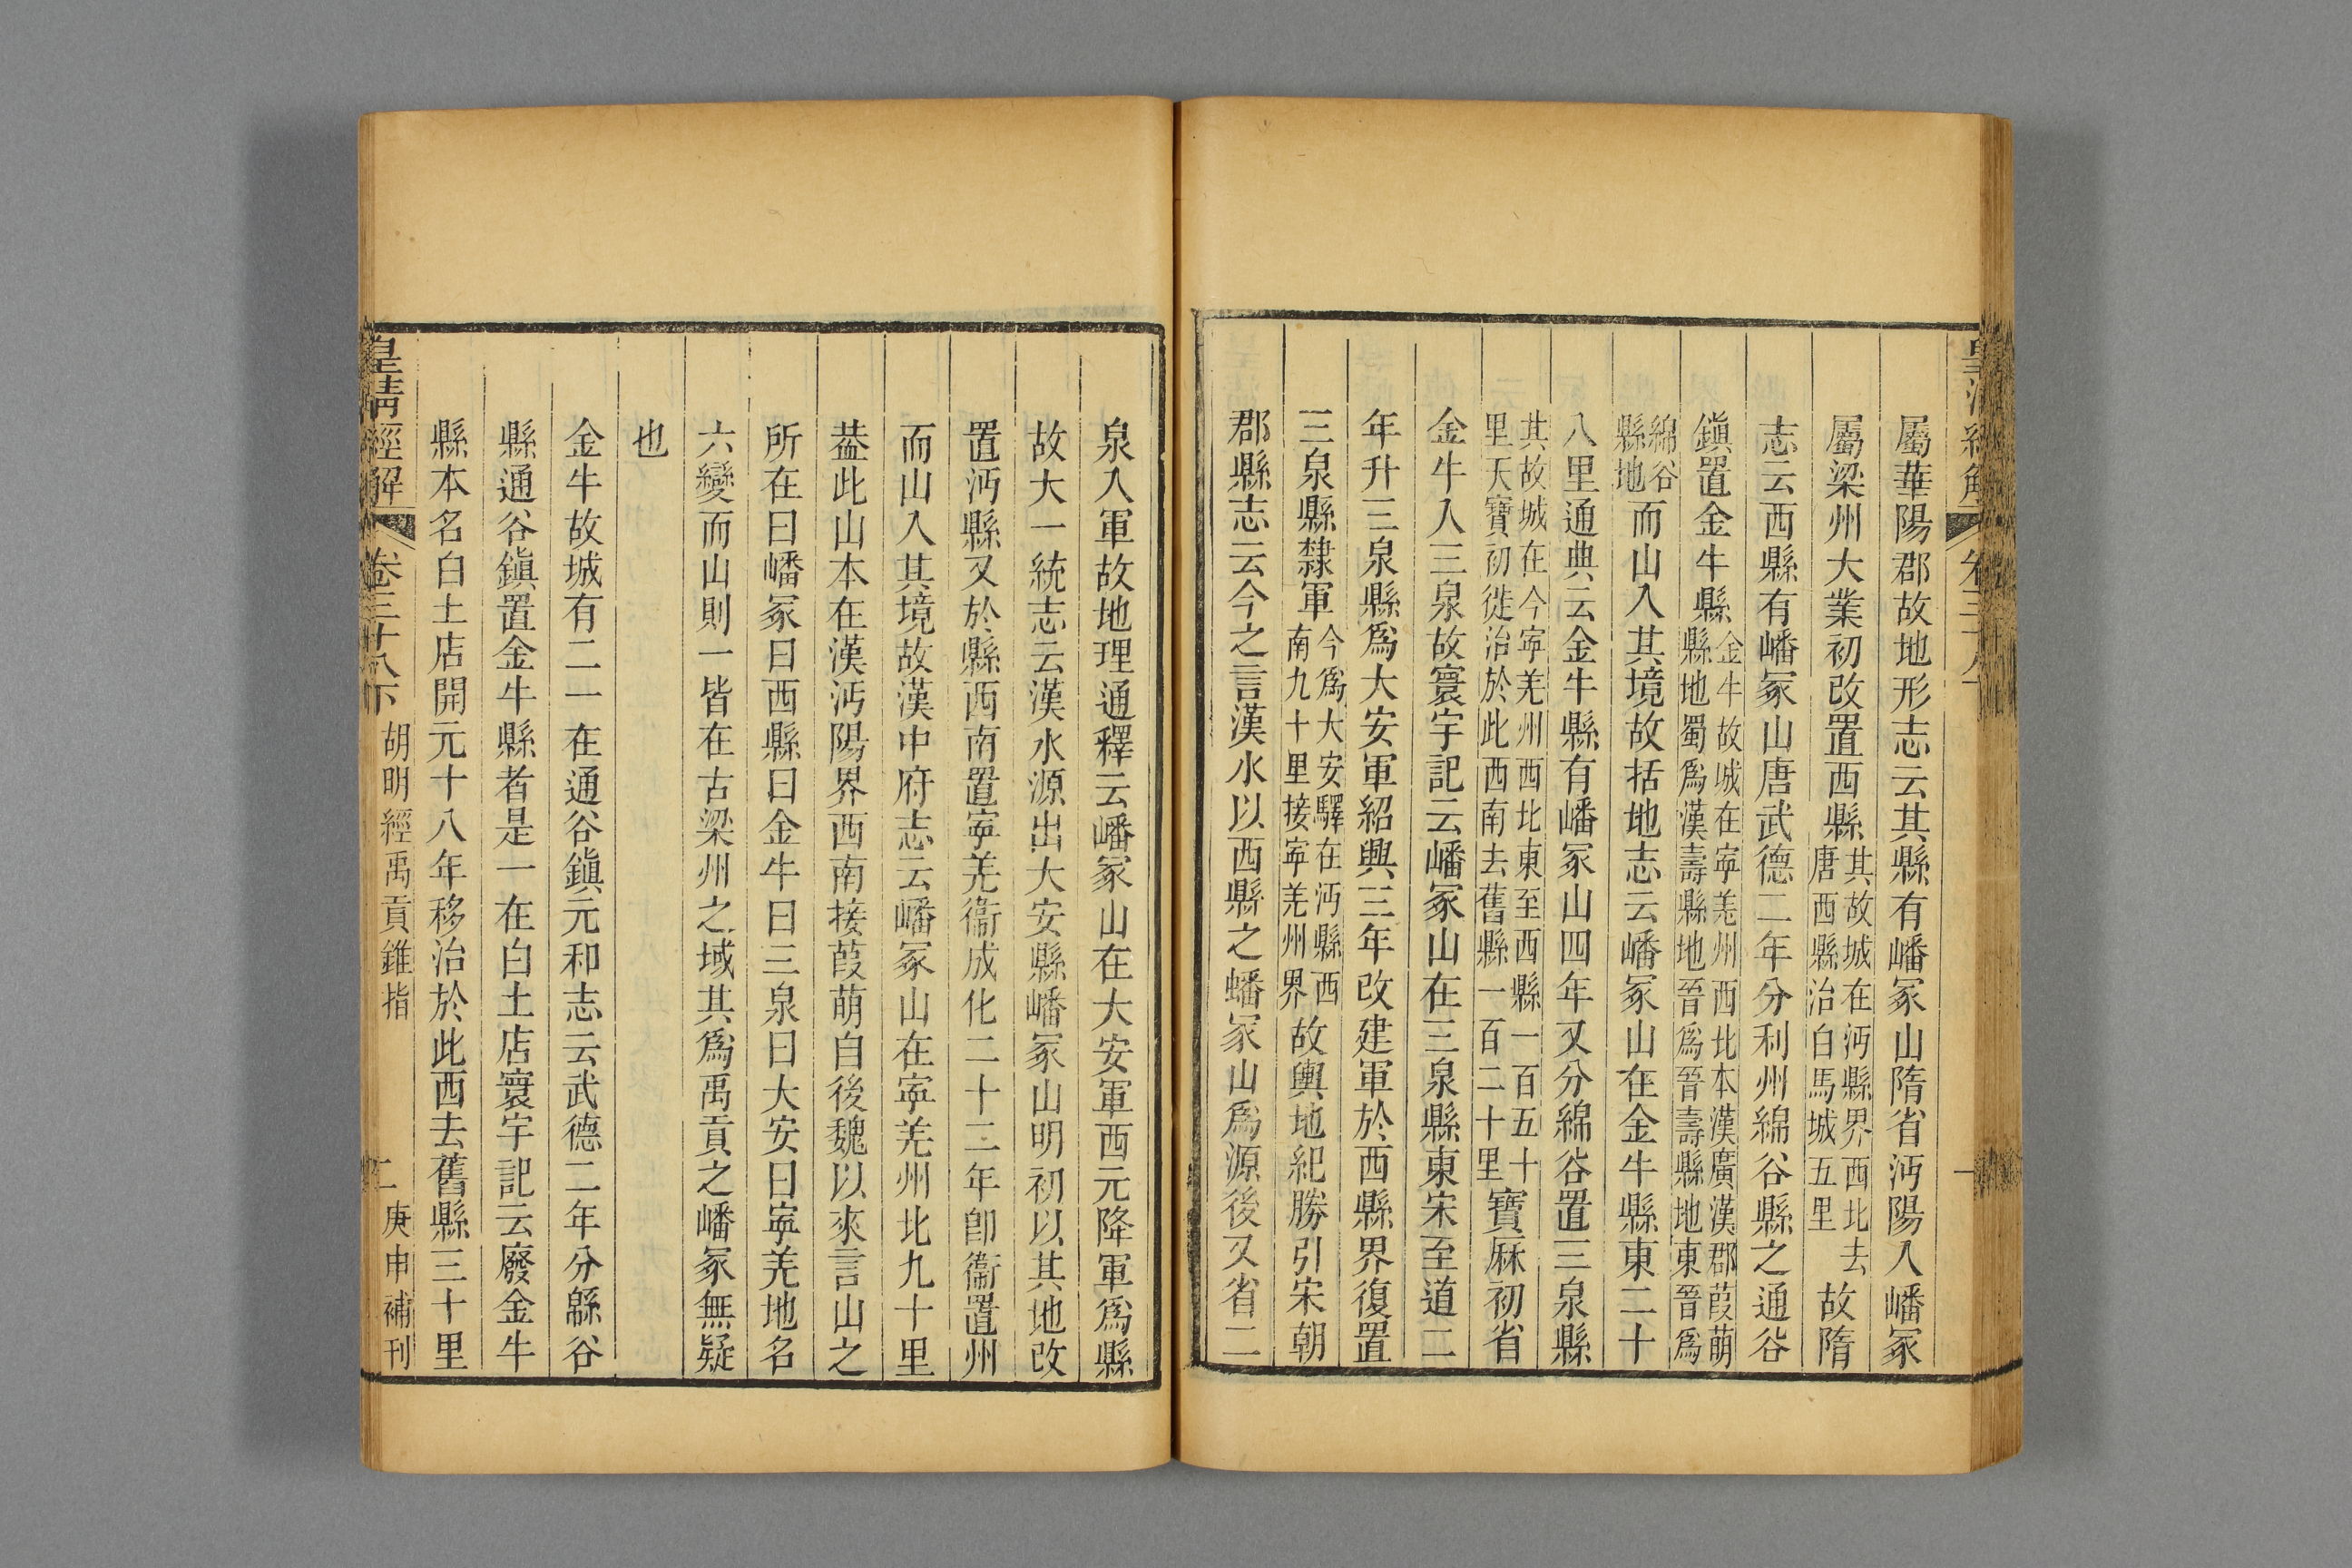 屬華陽郡故地形志云其縣有嶓冢山隋省沔陽入嶓冢
屬梁州大業初改置西縣其故城在沔縣界西北去唐西縣治白馬城五里故隋
志云西縣有嶓冢山唐武德二年分利州綿谷縣之通谷
鎭置金牛縣金牛故城在寧羌州西北本漢廣漢郡葭萌縣地蜀爲漢壽縣地晉爲晉壽縣地東晉爲
綿谷縣地而山入其境故括地志云嶓冢山在金牛縣東二十
八里通典云金牛縣有嶓冢山四年又分綿谷置三泉縣
其故城在今寧羌州西北東至西縣一百五十里天寶初徙治於此西南去舊縣一百二十里寶厤初省
金牛入三泉故寰宇記云嶓冢山在三泉縣東宋至道二
年升三泉縣爲大安軍紹興三年改建軍於西縣界復置
三泉縣隸軍今爲大安驛在沔縣西南九十里接寧羌州界故輿地紀勝引宋朝
郡縣志云今之言漢水以西縣之嶓冢山爲源後又省二
泉入軍故地理通釋云嶓冢山在大安軍西元降軍爲縣
故大一統志云漢水源出大安縣嶓冢山明初以其地改
置沔縣又於縣西南置寧羌衞成化二十二年卽衞置州
而山入其境故漢中府志云嶓冢山在寧羌州北九十里
葢此山本在漢沔陽界西南接葭萌自後魏以來言山之
所在曰嶓冢曰西縣曰金牛曰三泉曰大安曰寧羌地名
六變而山則一皆在古梁州之域其爲禹貢之嶓冢無疑
也
金牛故城有二一在通谷鎭元和志云武德二年分緜谷
縣通谷鎭置金牛縣者是一在白土店寰宇記云廢金牛
縣本名白土店開元十八年移治於此西去舊縣三十里
皇清經解 卷三十八下 胡明經禹貢錐指 二 庚申補刊